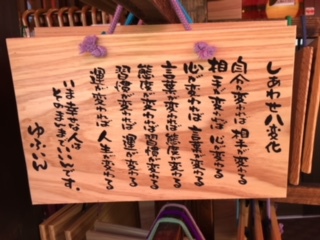 しあわせ八変化
自分が変わると相手が変わる
相手が変われば心が変わる
心が変われば言葉が変わる
言葉が変われば態度が変わる
態度が変われば習慣が変わる
習慣が変われば運が変わる
運が変われば人生が変わる
いま幸せな人は
そのままでいいんです。
ゆふいん